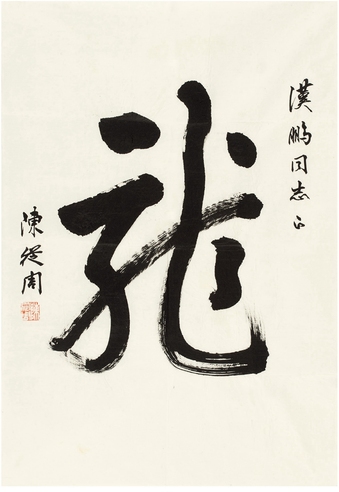 漢鹏同志正
龍
陳從周